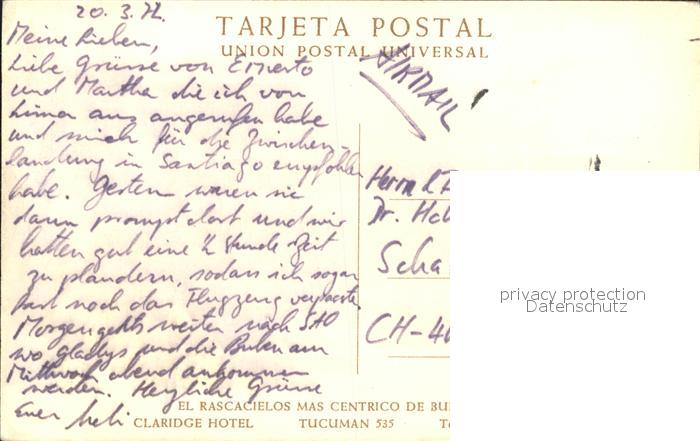 20.3.72.
TARJETA POSTAL
UNION POSTAL UNIVERSAL
AIRMAIL
Meine Lieben,
Liebe Grüsse von Ernesto
und Martha die ich von
Lima aus angerufen habe
und mich für die Zwischen-
landung in Santiago empfohlen
habe. Gestern waren sie
dann prompt dort und wir
hatten gut eine ½ Stunde Zeit
zu plaudern, sodass ich sogar
fast noch das Flugzeug verpasste.
Morgen gehts weiter nach SAO
wo Gladys und die Buben am
Mittwoch abend ankommen
werden. Herzliche Grüsse
Euer
Herrn
Dr.
Scha
CH-4
privacy protection
Datenschutz
EL RASCACIELOS MAS CENTRICO DE BU
CLARIDGE HOTEL TUCUMAN 535